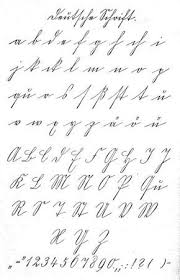 Deutsche Schrift.
a b c d e f g h ch i
j k ck l m n o p
qu r s ſ ß st t u
v w x y z ä ö ü
A B C D E F G H I J
K L M N O P Qu
R S T St U V W
X Y Z
„-"1234567890,.;:!?()-